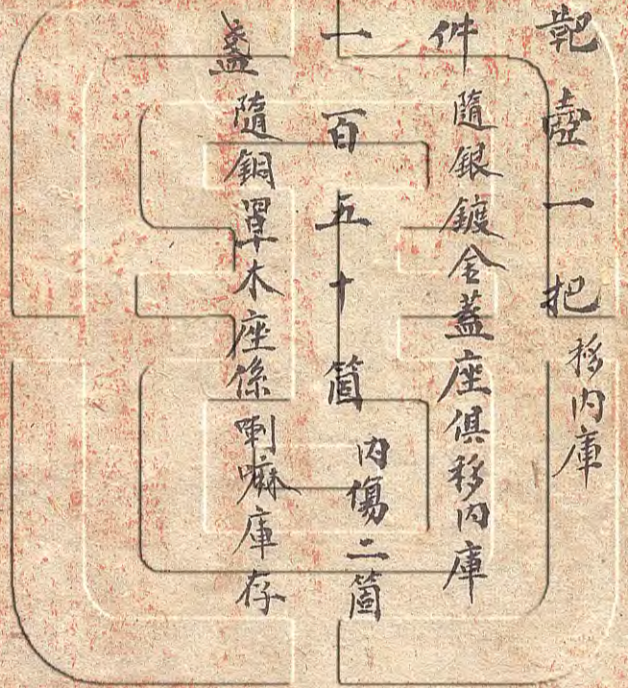 靶壺一把移内庫
件隨銀鍍金蓋座俱移内庫
一百五十箇内傷二箇
盞隨銅罩木座係喇嘛庫存